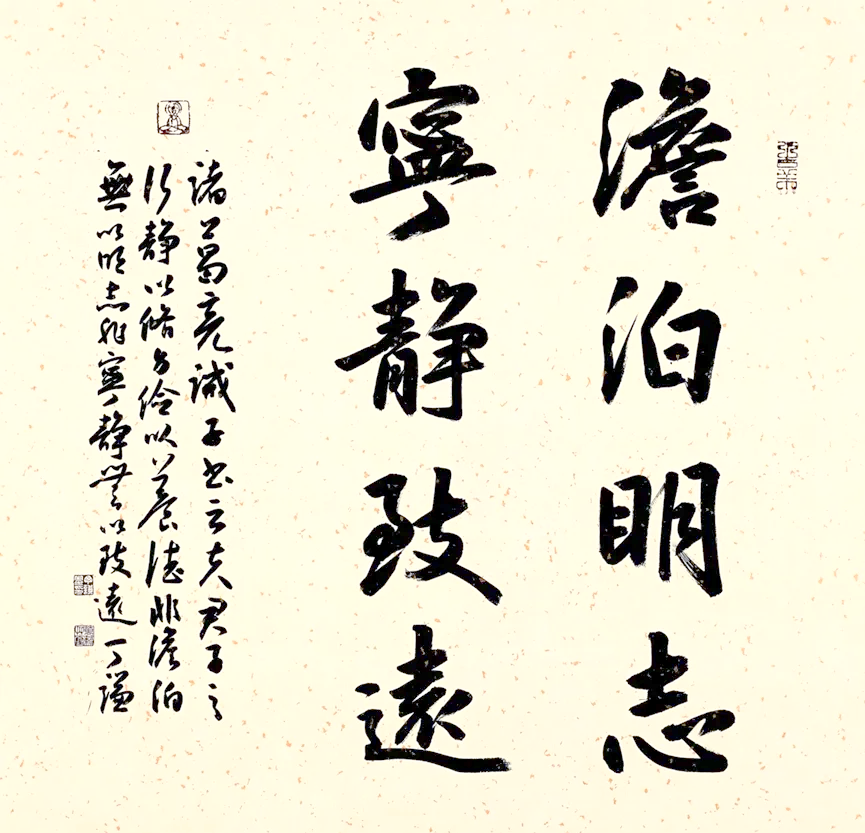 澹泊明志
寧靜致遠
諸葛亮誡子書云夫君子之
行靜以脩身儉以養德非澹泊
無以明志非寧靜無以致遠丁謙